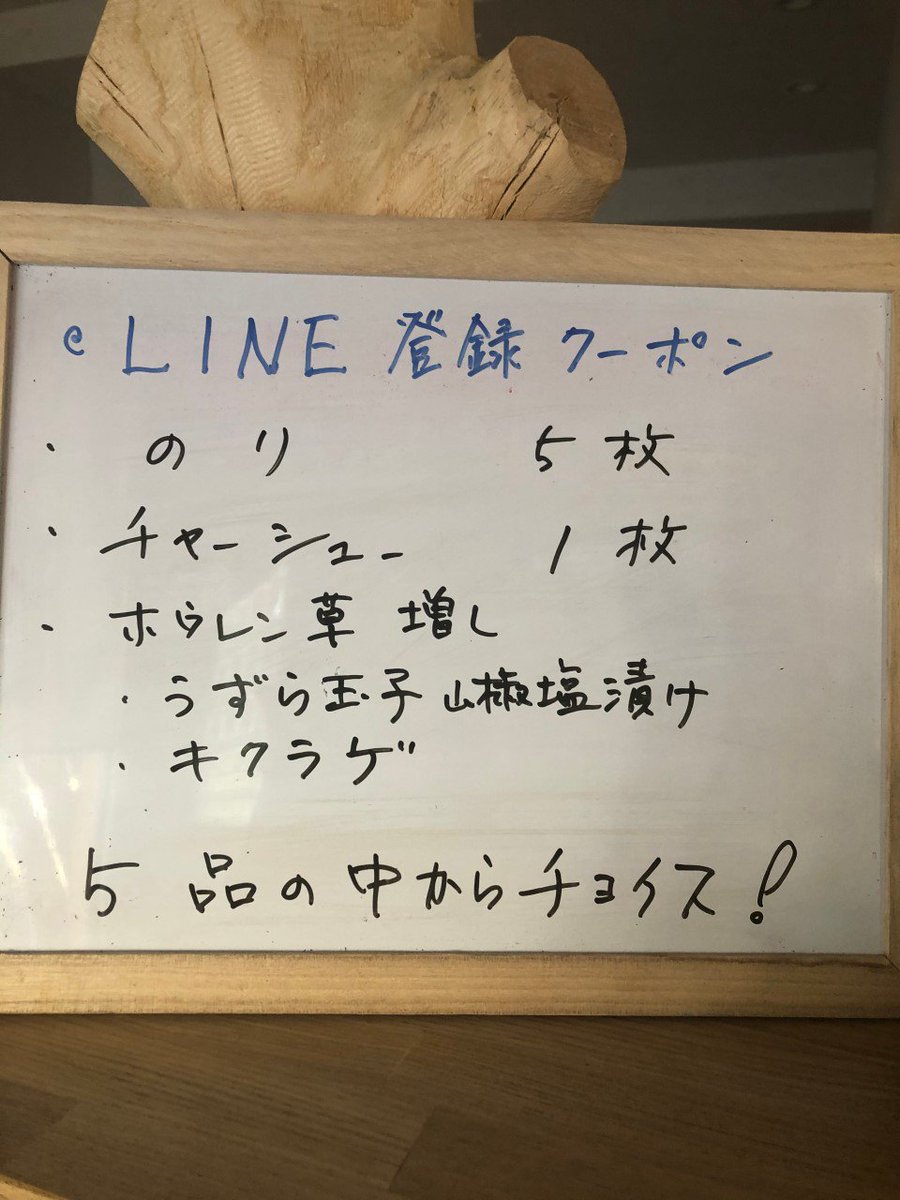 @ LINE 登録 クーポン
・ のり 5枚
・ チャーシュー 1枚
・ ホウレン草 増し
・ うずら玉子 山椒塩漬け
・ キクラゲ
5品の中からチョイス!